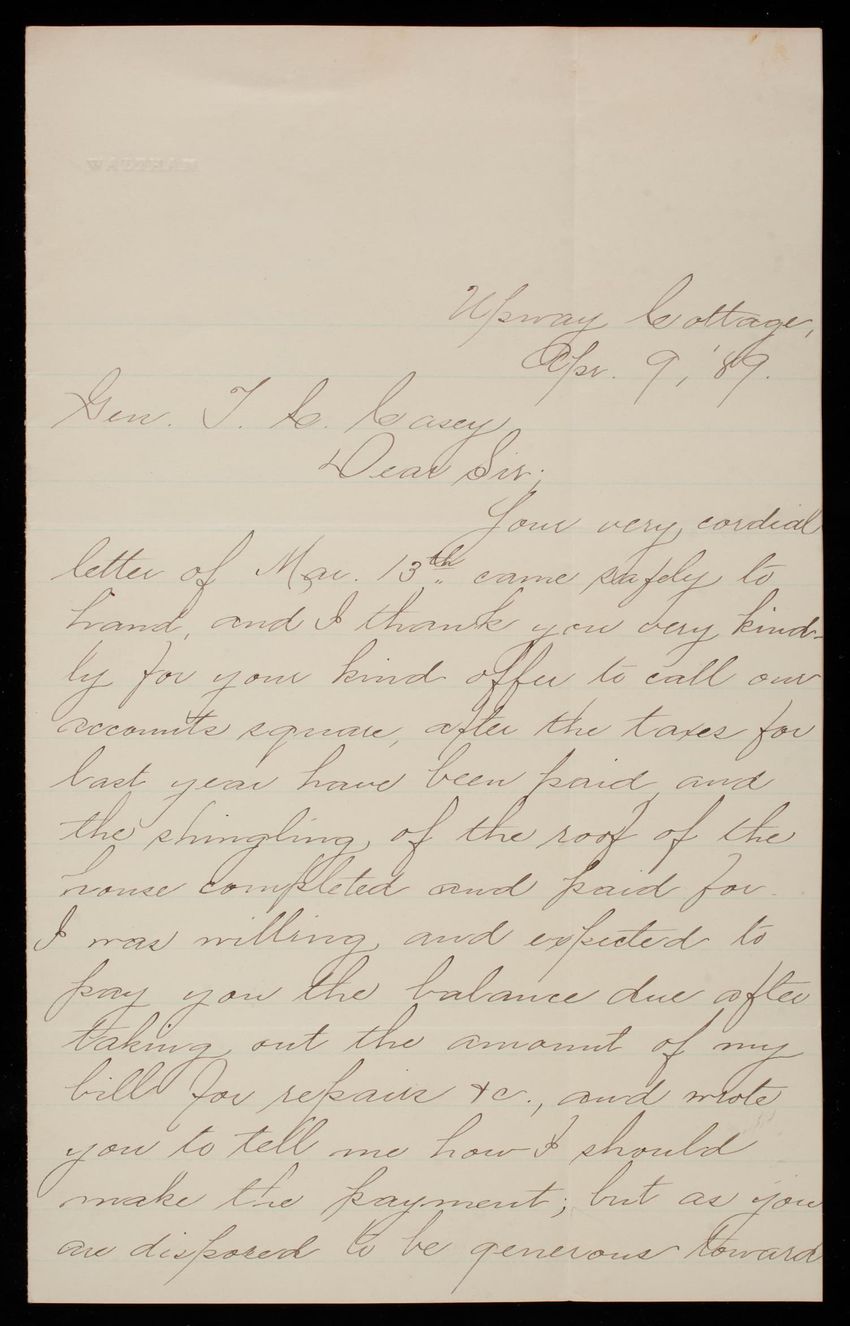 WALTHAM
Upway Cottage,
Apr. 9, '89.
Gen. T. C. Casey
Dear Sir;
Your very cordial
letter of Mar. 13th came safely to
hand, and I thank you very kind-
ly for your kind offer to call our
accounts square, after the taxes for
last year have been paid and
the shingling of the roof of the
house completed and paid for.
I was willing and expected to
pay you the balance due after
taking out the amount of my
bill for repairs &c., and wrote
you to tell me how I should
make the payment; but as you
are disposed to be generous toward